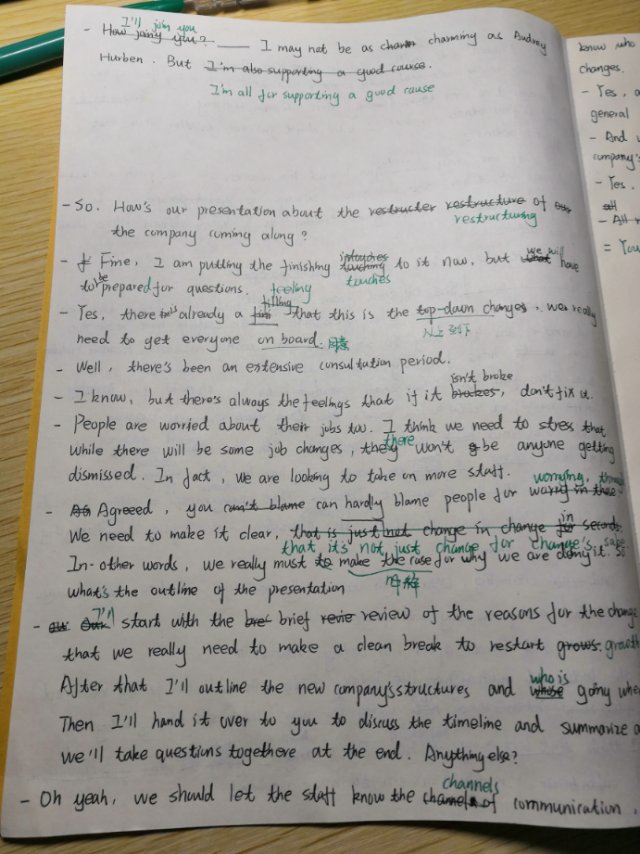 I'll join you
- How joing you? ___ I may not be as charm charming as Audrey
Hurben. But I'm also supporting a good cause.
I'm all for supporting a good cause
- So. How's our presentation about the restructer restructure of our
restructuring
the company coming along?
- Fine, I am putting the finishing touching to it now, but what we will have
touches
to be prepared for questions.
feeling
filling
- Yes, there is already a that this is the top-down changes, we really
从上到下
need to get everyone on board. 同意
- Well, there's been an extensive consultation period.
- I know, but there's always the feelings that if it brokes, don't fix it.
isn't broke
- People are worried about their jobs too. I think we need to stress that
while there will be some job changes, they won't be anyone getting
there
dismissed. In fact, we are looking to take on more staff.
worrying, though
- Agreeed, you can't blame can hardly blame people for
We need to make it clear, that is just not change in change for seconds.
in
that, it's not just change for change's sake
In-other words, we really must to make the case for why we are doing it. So
what's the outline of the presentation
- I'll start with the brief review of the reasons for the change
that we really need to make a clean break to restart grows. growth
After that I'll outline the new company's structures and whose going where
who is
Then I'll hand it over to you to discuss the timeline and summarize a
we'll take questions togethere at the end. Anything else?
- Oh yeah, we should let the staff know the channels of communication,
channels
know who
changes.
- Yes, a
general
- And
company's
- Yes.
all
- All
= You